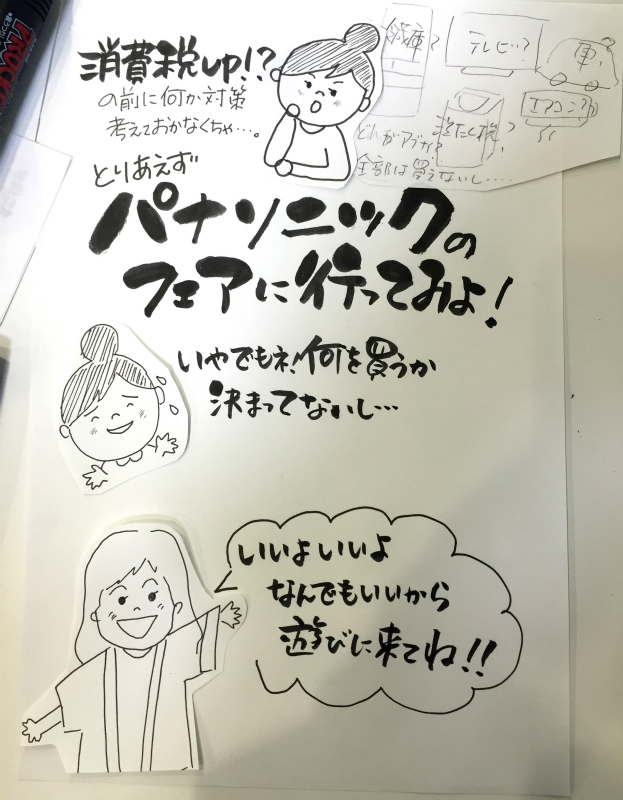 消費税up!?
の前に何か対策
考えておかなくちゃ…。
蔵庫?
テレビ?
車?
エアコン?
洗たく機?
どんがアブか?
全部は買えないし……
とりあえず
パナソニックの
フェアに行ってみよ!
いやでもネ!何を買うか
決まってないし…
いいよいいよ
なんでもいいから
遊びに来てね!!